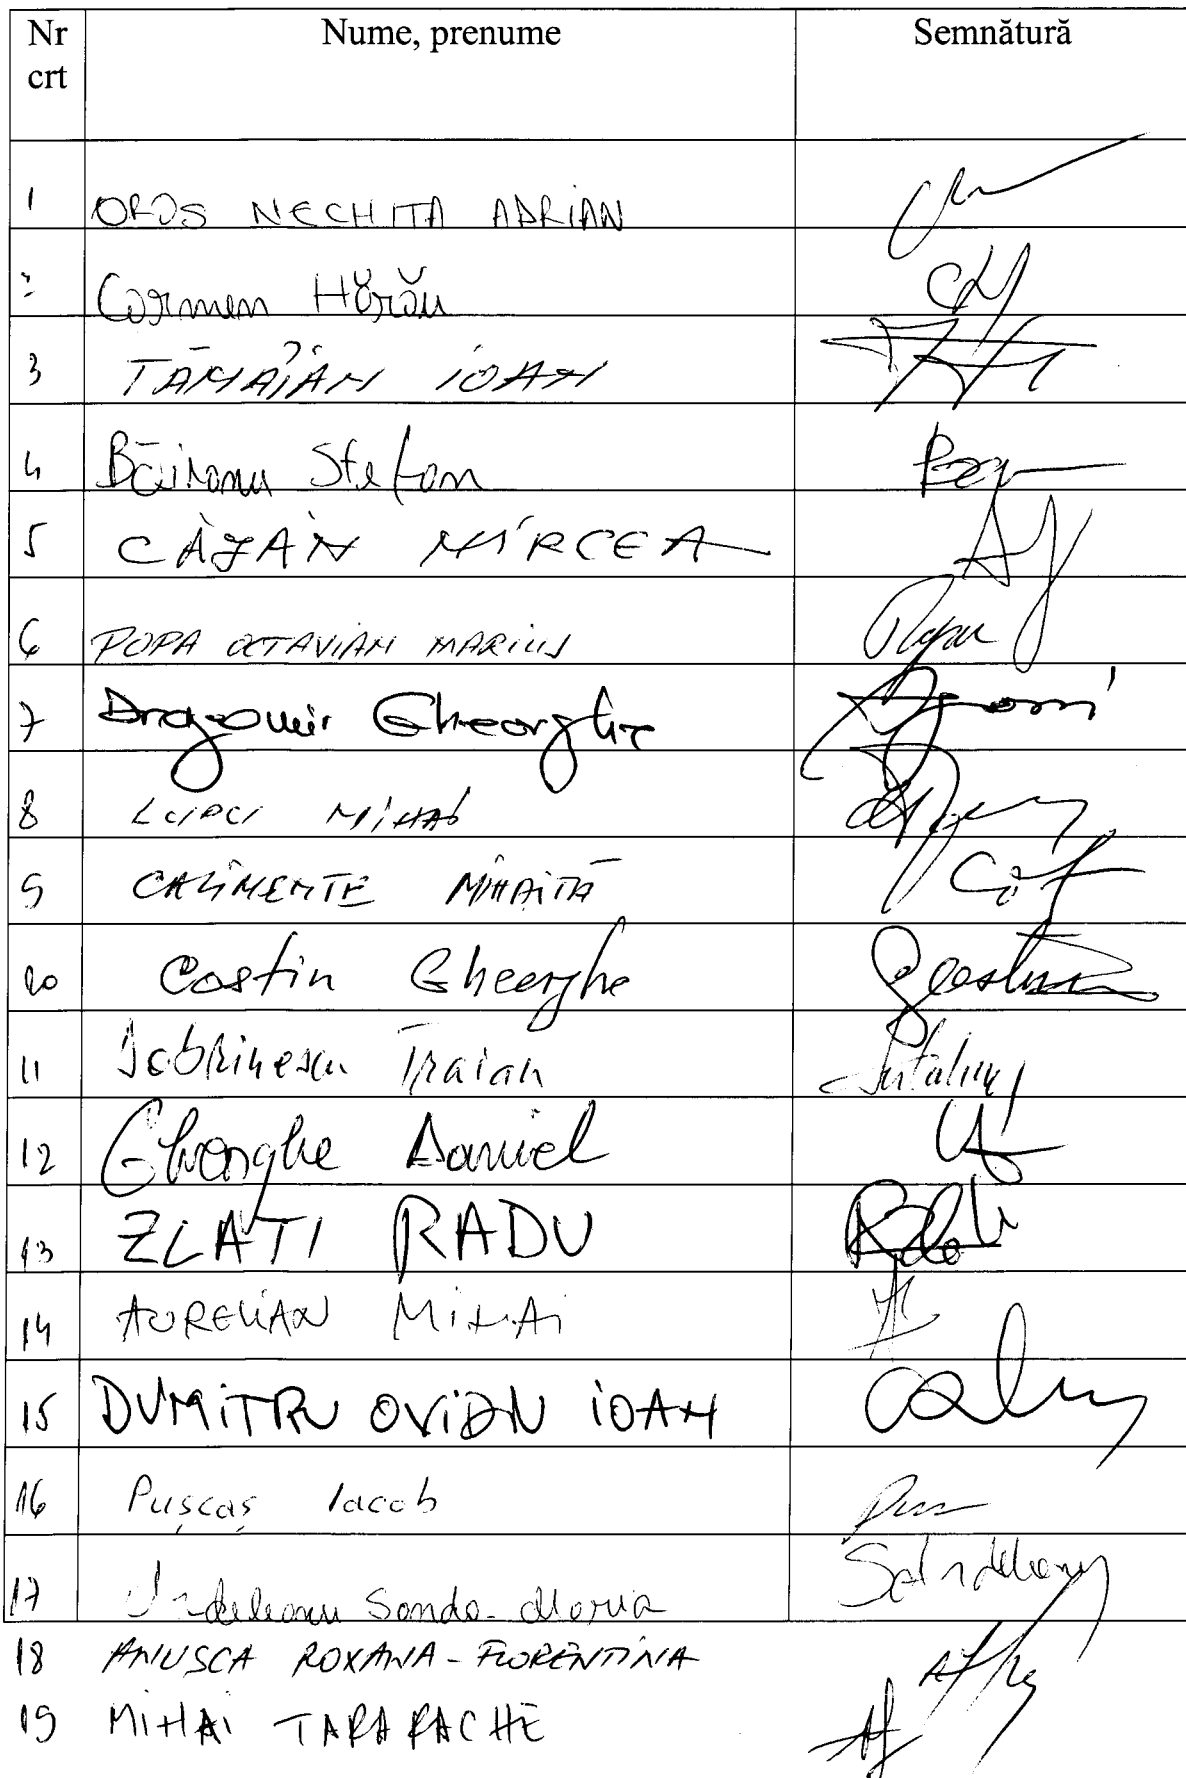 Nr crt Nume, prenume Semnătură
1 OROS NECHITA ADRIAN
2 Carmen Hărău
3 TĂMÂIAN IOAN
4 Băisanu Stefan
5 CAZAN MIRCEA
6 POPA OCTAVIAN MARIUS Popa
7 Dragomir Gheorghe
8 LUPCI MIHAI
9 CALIMENTE MIHĂIȚĂ
10 Costin Gheorghe
11 Dobrinescu Traian
12 Gheorghe Daniel
13 ZLATI RADU
14 AURELIAN MIHAI
15 DUMITRU OVIDIU IOAN
16 Pușcaș Iacob
17 Sanda-Maria
18 ANUSCA ROXANA-FLORENTINA
19 MIHAI TARARACHE